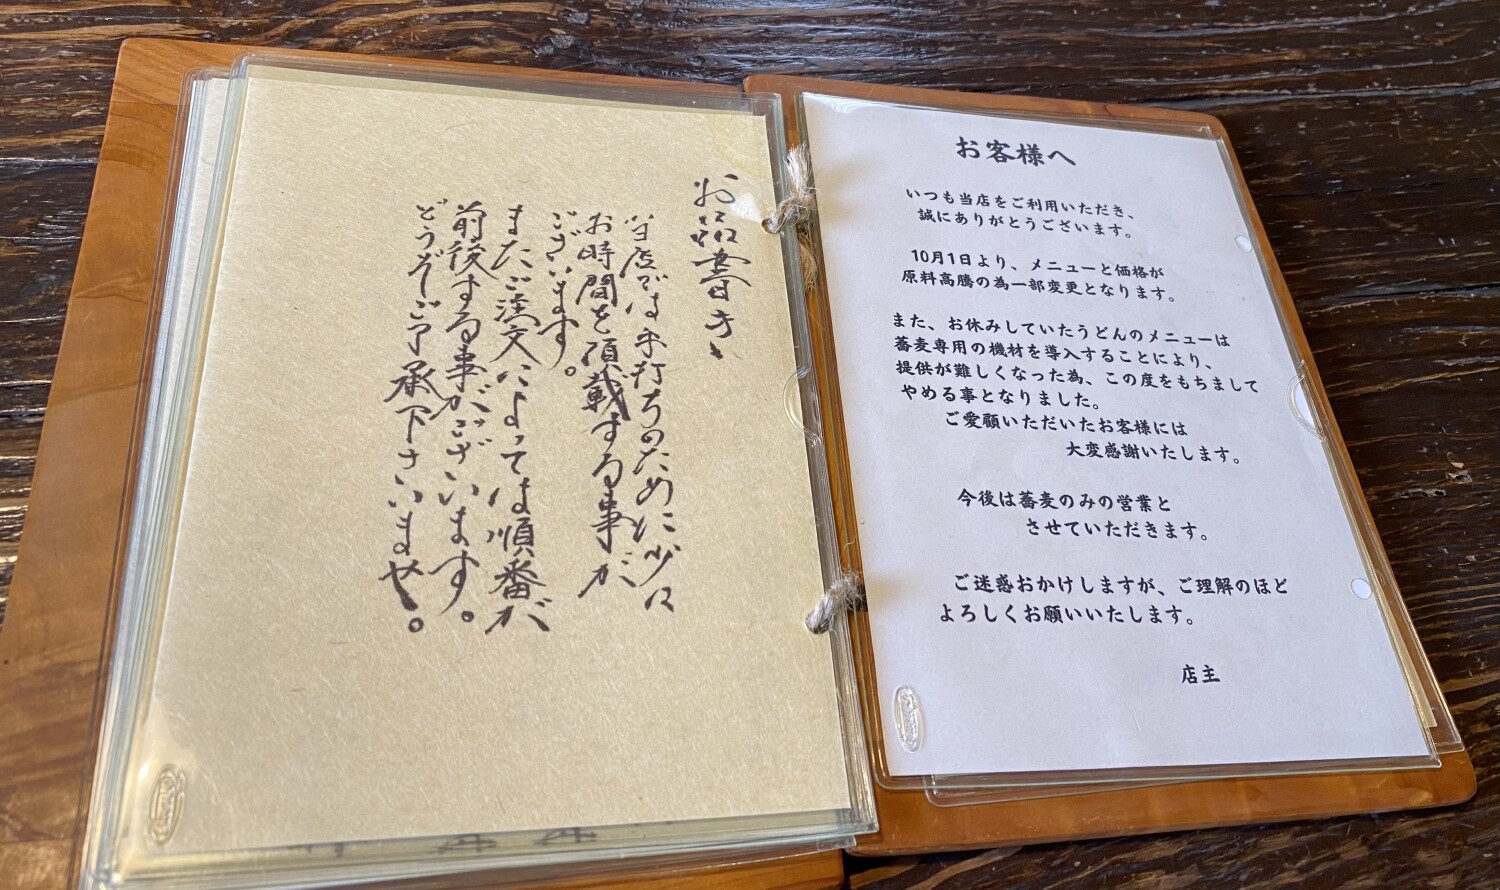 お品書き
当店では手打ちのために少々
お時間を頂戴する事が
ございます。
またご注文によっては順番が
前後する事がございます。
どうぞご了承下さいませ。
お客様へ
いつも当店をご利用いただき、
誠にありがとうございます。
10月1日より、メニューと価格が
原料高騰の為一部変更となります。
また、お休みしていたうどんのメニューは
蕎麦専用の機材を導入することにより、
提供が難しくなった為、この度をもちまして
やめる事となりました。
ご愛顧いただいたお客様には
大変感謝いたします。
今後は蕎麦のみの営業と
させていただきます。
ご迷惑おかけしますが、ご理解のほど
よろしくお願いいたします。
店主